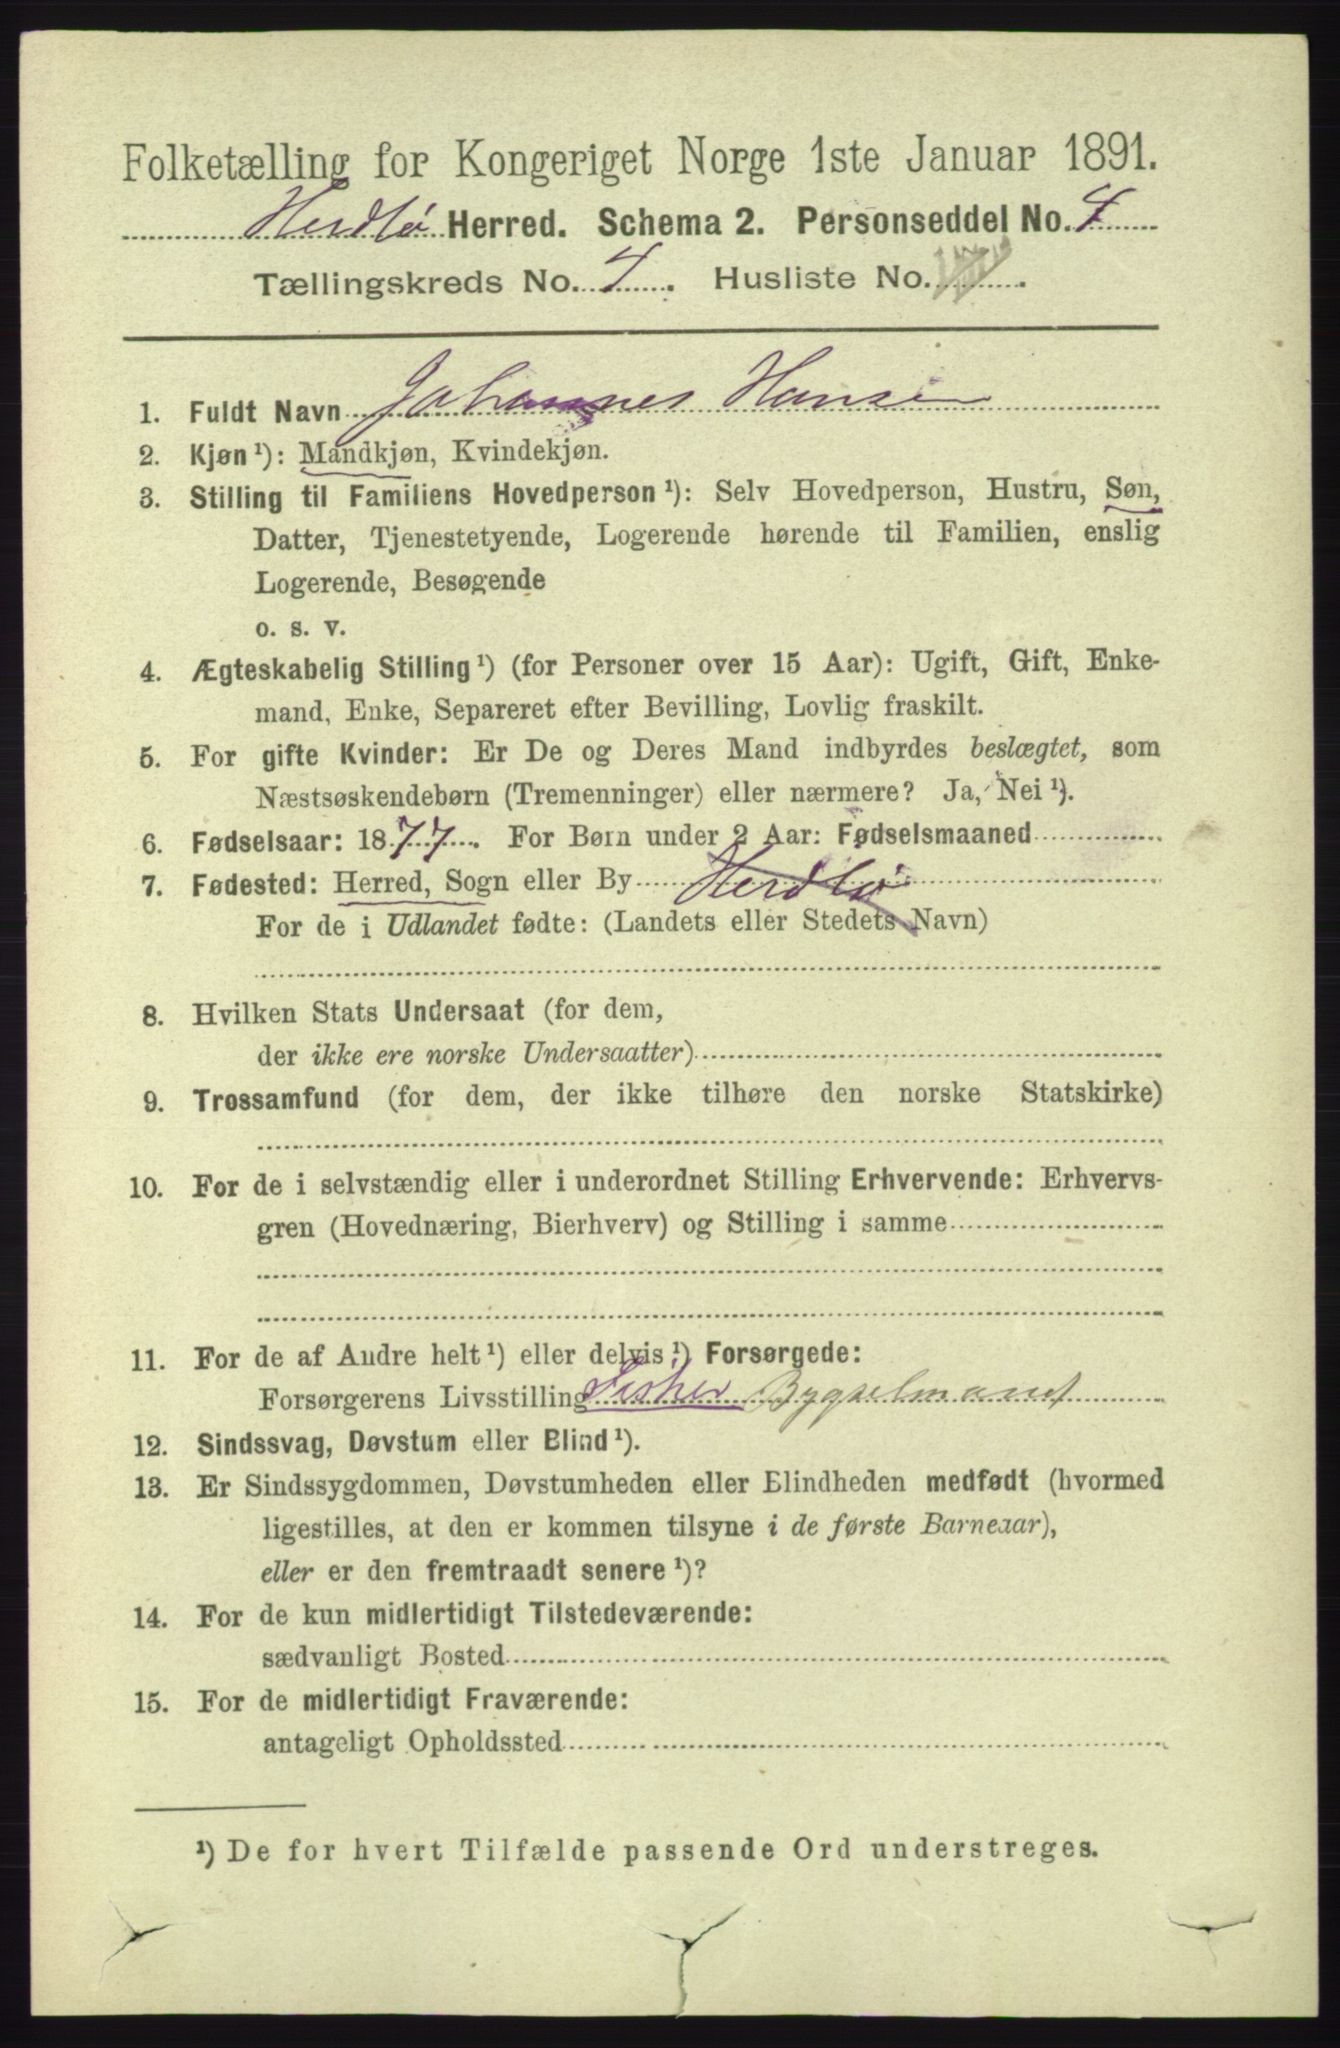 Folketælling for Kongeriget Norge 1ste Januar 1891.
Herdlø Herred. Schema 2. Personseddel No. 4
Tællingskreds No. 4. Husliste No.
1. Fuldt Navn Johannes Hansen
2. Kjøn¹): Mandkjøn, Kvindekjøn.
3. Stilling til Familiens Hovedperson¹): Selv Hovedperson, Hustru, Søn,
Datter, Tjenestetyende, Logerende hørende til Familien, enslig
Logerende, Besøgende
o. s. v.
4. Ægteskabelig Stilling¹) (for Personer over 15 Aar): Ugift, Gift, Enke-
mand, Enke, Separeret efter Bevilling, Lovlig fraskilt.
5. For gifte Kvinder: Er De og Deres Mand indbyrdes beslægtet, som
Næstsøskendebørn (Tremenninger) eller nærmere? Ja, Nei¹).
6. Fødselsaar: 1877. For Børn under 2 Aar: Fødselsmaaned
7. Fødested: Herred, Sogn eller By Herdlø
For de i Udlandet fødte: (Landets eller Stedets Navn)
8. Hvilken Stats Undersaat (for dem,
der ikke ere norske Undersaatter)
9. Trossamfund (for dem, der ikke tilhøre den norske Statskirke)
10. For de i selvstændig eller i underordnet Stilling Erhvervende: Erhvervs-
gren (Hovednæring, Bierhverv) og Stilling i samme
11. For de af Andre helt¹) eller delvis¹) Forsørgede:
Forsørgerens Livsstilling Fisker Bygselmand
12. Sindssvag, Døvstum eller Blind¹).
13. Er Sindssygdommen, Døvstumheden eller Blindheden medfødt (hvormed
ligestilles, at den er kommen tilsyne i de første Barneaar),
eller er den fremtraadt senere¹)?
14. For de kun midlertidigt Tilstedeværende:
sædvanligt Bosted
15. For de midlertidigt Fraværende:
antageligt Opholdssted
¹) De for hvert Tilfælde passende Ord understreges.